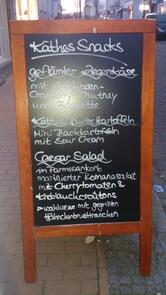 Käthes Snacks
geflämter Ziegenkäse
mit
Chutney
und
Käthes Kartoffeln
Mini Backkartoffeln
mit Sour Cream
Caesar Salad
im Parmesankorb
marinierter Romanasalat
mit Cherrytomaten &
Knoblauchcroûtons
wahlweise mit gegrillten
Hähnchenbruststreifen